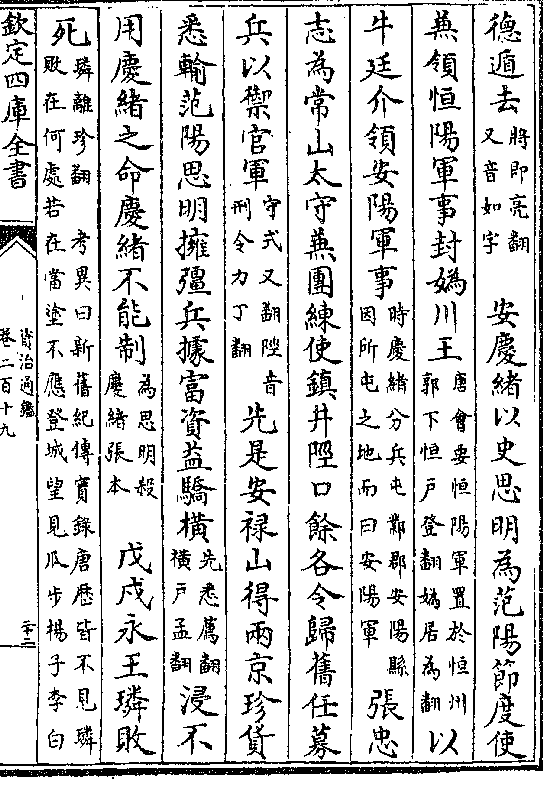 德遁去將即亮翻又音如字　安慶緒以史思明為范陽節度使
兼領恒陽軍事封媯川王唐會要恒陽軍置於恒州郭下恒戶登翻媯居為翻以
牛廷介領安陽軍事時慶緒分兵屯鄴郡安陽縣因所屯之地而曰安陽軍張忠
志為常山太守兼團練使鎮井陘口餘各令歸舊任募
兵以禦官軍守式又翻陘音刑令力丁翻先是安禄山得兩京珍貨
悉輸范陽思明擁彊兵據富資益驕橫先悉薦翻橫戶孟翻浸不
用慶緒之命慶緒不能制為思明殺慶緒張本　戊戌永王璘敗
死璘離珍翻　考異曰新舊紀傳實錄唐歷皆不見璘敗在何處若在當塗不應登城望見瓜步揚子李白
欽定四庫全書
資治通鑑
卷二百十九